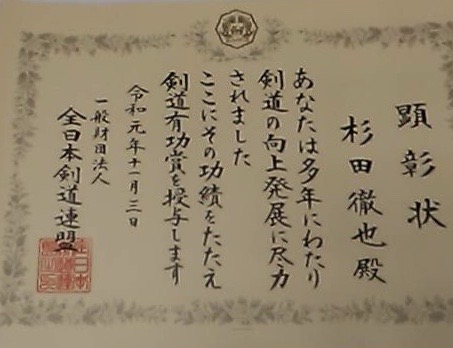 顕彰状
杉田徹也殿
あなたは多年にわたり
剣道の向上発展に尽力
されました
ここにその功績をたたえ
剣道有功賞を授与します
令和元年十一月三日
一般財団法人
全日本剣道連盟